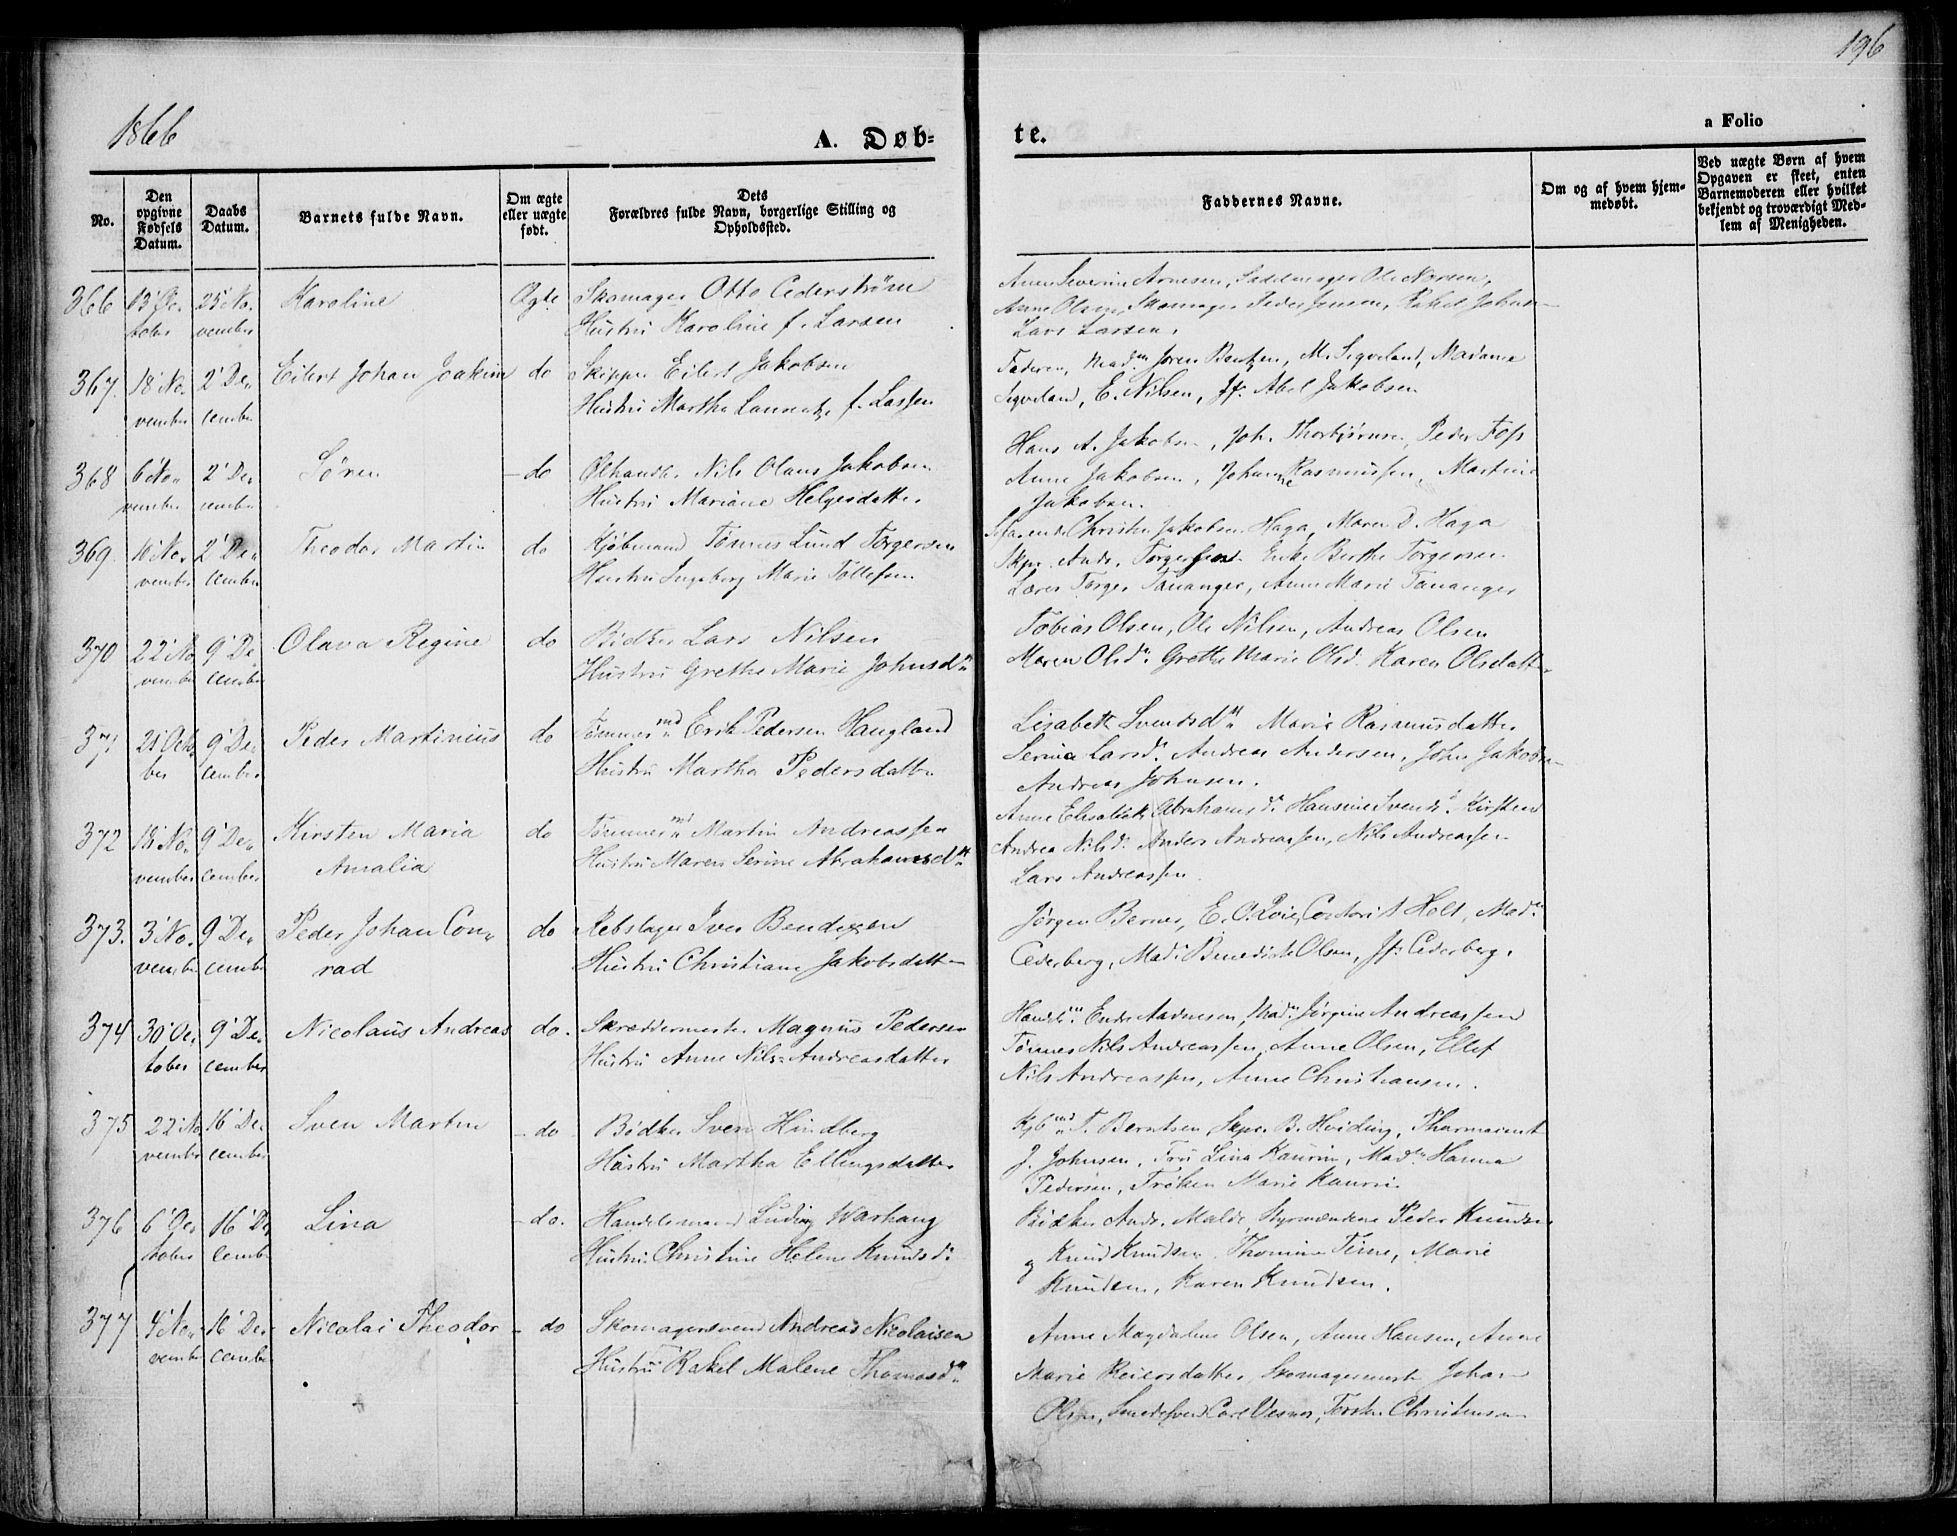 196
1866
A. Døb-
te.
a Folio
No.
Den opgivne Fødsels Datum.
Daabs Datum.
Barnets fulde Navn.
Om ægte eller uægte født.
Dets Forældres fulde Navn, borgerlige Stilling og Opholdssted.
Faddernes Navne.
Om og af hvem hjemmedøbt.
Ved uægte Børn af hvem Opgaven er skeet, enten Barnemoderen eller hvilket bekjendt og troværdigt Medlem af Menigheden.
366 13' Oc- 25' No- Karoline Ægte Skomager Otto Cederstrøm
tober vember Hustru Karoline f. Larsen
Anne Severine Arnesen, Sadelmager Ole Narsen,
Anne Olsen, Skomager Peder Jensen, Rakel Johnsen
Lars Larsen.
367. 18' No- 2' De- Eilert Johan Joakim do Skipper Eilert Jakobsen
vember cember Hustru Martha f. Lassen
Faderen, Mad. Berntzen, M. Sigveland, Madame
Sigveland, E. Nilsen, Jf. Abel Jakobsen
368 6' No- 2' De- Søren do Nils Olaus Jakobsen
vember cember Hustru Mariane Helgesdatter
Hans A. Jakobsen, Joh. Thorbjørnsen, Peder Foss
Anne Jakobsen, Johanne Rasmussen, Martine
Jakobsen.
369. 10' No- 2' De- Theodor Martin do Kjøbmand Tønnes Lund Torgersen
vember cember Hustru Ingeborg Marie Tollefsen
Christen Jakobsen Haga, Maren D. Haga
Skpr. Andr. Torgersen Enke Berthe Torgersen
Lærer Torger Tananger, Anne Marie Tananger
370 22' No 9' De Olava Regine do Bødker Lars Nilsen
vember cember Hustru Grethe Marie Johnsdtr
Tobias Olsen, Ole Nilsen, Andreas Olsen
Maren Olsdr Grethe Marie Olsd. Karen Olsdatter
371 21' Octo 9' De- Peder Martinius do Tømmermd Erik Pedersen Haugland
ber cember Hustru Martha Pedersdatter
Lisabeth Svendsdtr Marie Rasmusdatter
Serina Larsdr Andreas Andersen, John Jakobsen
Andreas Johnsen.
372 18' No- 9' De- Kirsten Maria do Tømmermd Martin Andreassen
vember cember Amalia Hustru Maren Serine Abrahamsdtr
Anne Elisabeth Abrahamsdr Hansine Svendsdr Kirsten
Andrea Nilsdr Anders Andreassen, Nils Andreassen
Lars Andreassen
373. 3' No- 9' De- Peder Johan Con- do Rebslager Iver Bendixen
vember cember rad Hustru Christiane Jakobsdatter
Jørgen Berner, E. O. Contorist Holt, Mad.
Cederberg, Mad. Benedicte Olsen, Jf. Cederberg.
374 30' Oc- 9' De- Nicolaus Andreas do. Skræddermester Magnus Pedersen
tober cember Hustru Anne Nils-Andreasdatter
Handelsm. Endre Aadnesen, Mad. Jørgine Andreassen
Tønnes Nils Andreassen, Anne Olsen, Ellef
Nils Andreassen, Anne Christiansen.
375 22' No 16' De- Sven Martin do Bødker Sven Hindberg
vember cember Hustru Martha Ellingsdatter
Kjbmd T. Berntsen, Skpr. B. Hviding, Pharmaceut
J. Johnsen, Fru Lina Kaurin, Mad. Hanna
Pedersen, Frøken Marie Kaurin.
376 6' Oc- 16' De Lina do. Handelsmand Ludvig Warhaug
tober cember Hustru Christine Helene Knudsdr
Bødker Andr. Malde, Styrmændene Peder Knudsen
og Knud Knudsen, Thomine Marie
Knudsen, Karen Knudsen.
377 4' No- 16' De- Nicolai Theodor do Skomagersvend Andreas Nicolaisen
vember cember Hustru Rakel Malene Thomasdtr
Anne Magdalene Olsen, Anne Hansen, Anne
Marie Reiersdatter, Skomagermester Johan
Olsen, Smedesvend Carl Torsten Christensen